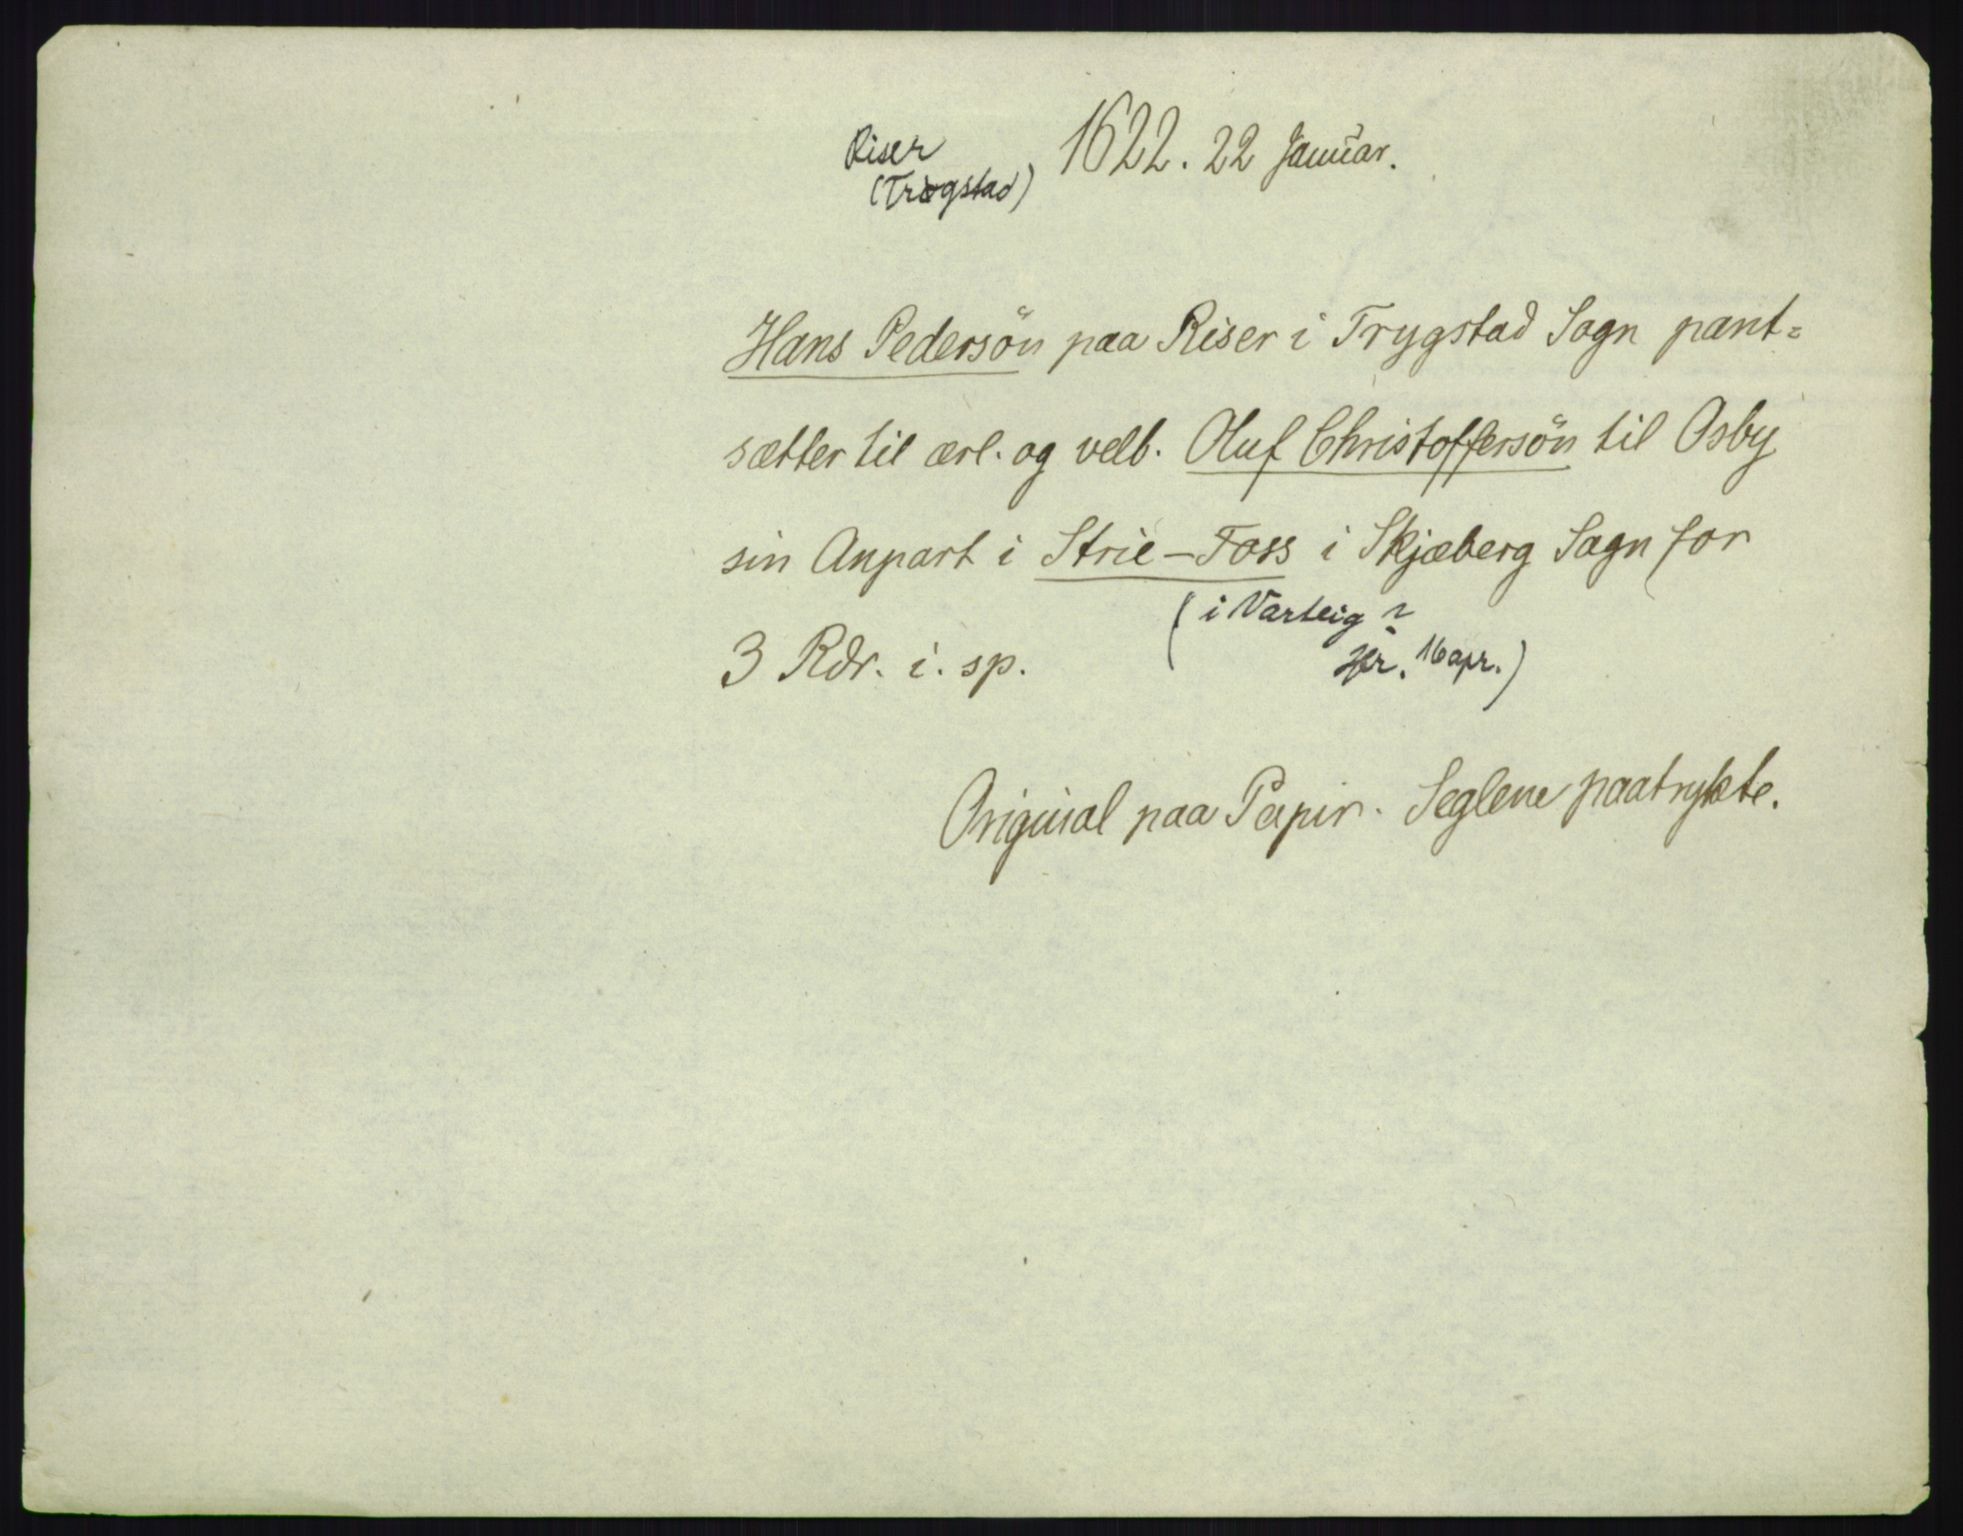 Riser
(Trøgstad)
1622. 22 Januar.
Hans Pedersön paa Riser i Trygstad Sogn pant=
sætter til ærl. og velb. Oluf Christoffersön til Osby
sin Anpart i Strie-Foss i Skjæberg Sogn for
(i Varteig?
3 Rdr. i. sp.
jfr. 16 apr.)
Original paa Papir. Seglene paatrykte.